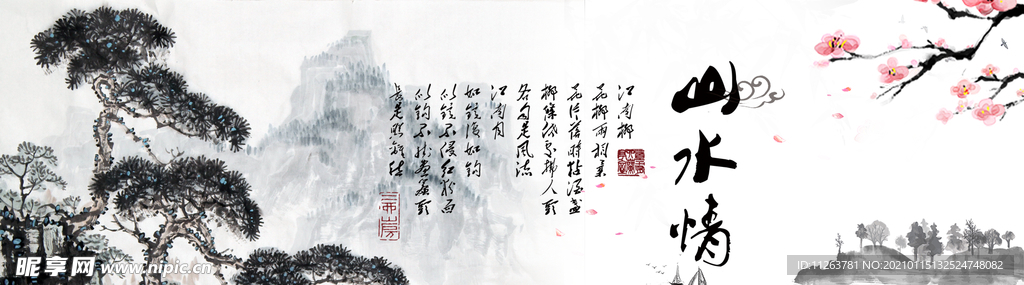 山水情
江南柳
花柳两相柔
花片落时黏酒盏
柳条低处拂人头
各自是风流
江南月
如镜复如钩
似镜不侵红粉面
似钩不挂画帘头
长是照离愁
昵享网 www.nipic.cn
ID:11263781 NO:20210115132524748082